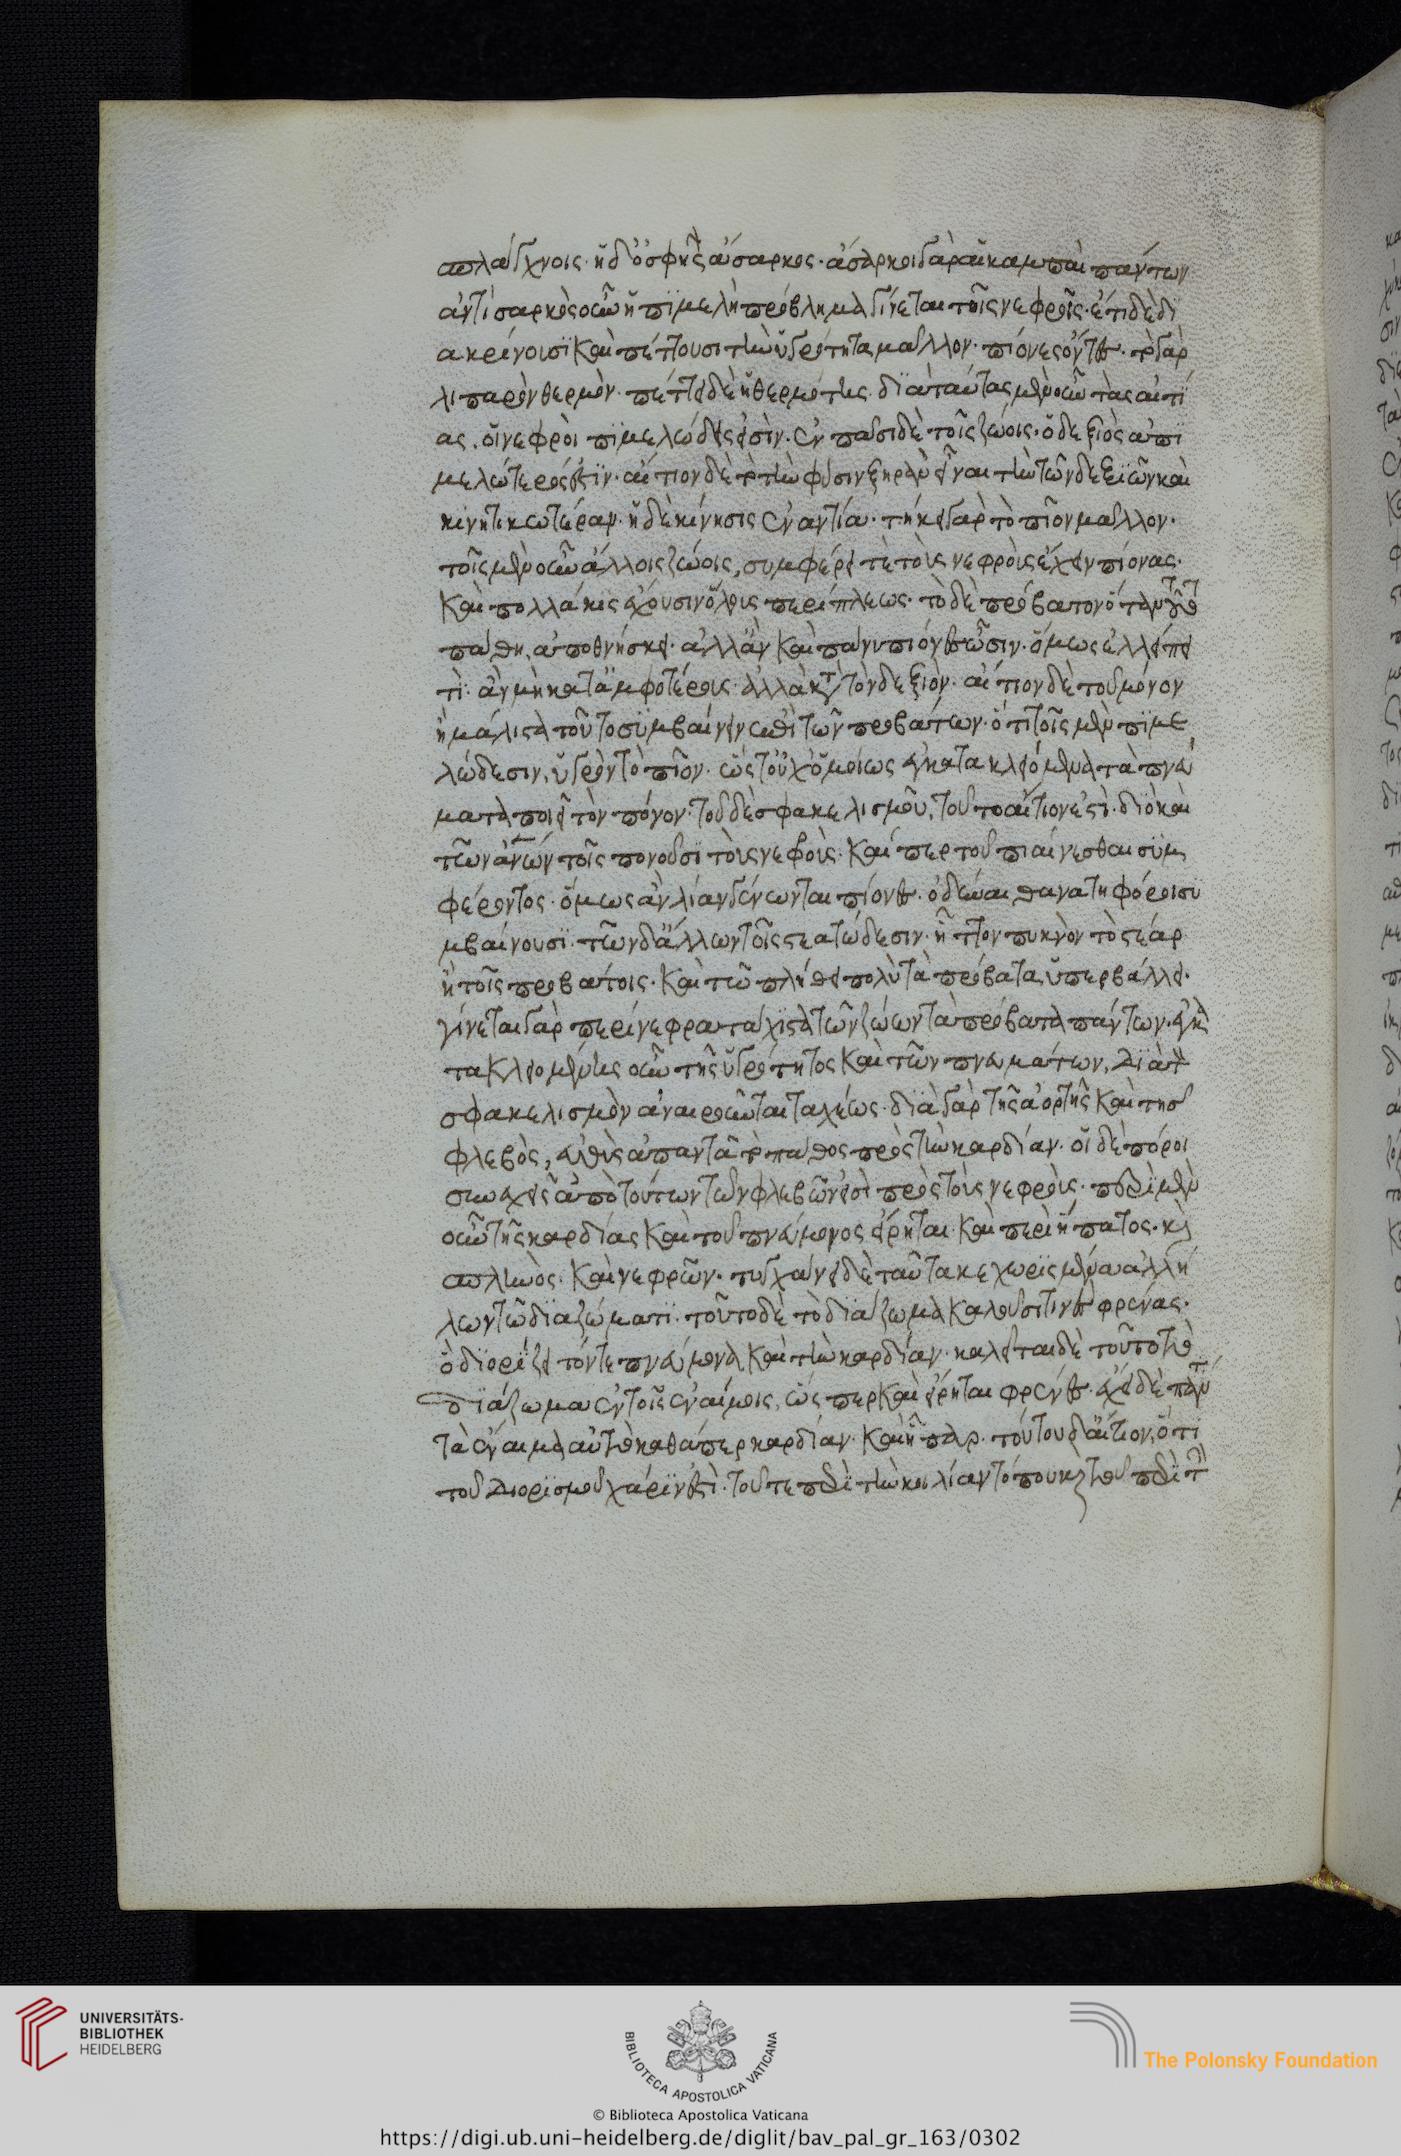 σπλάγχνοις· ἡ δ' ὀσφῦς ἄσαρκος· ἄσαρκοι γὰρ αἱ καμπαὶ πάντων
ἀντὶ σαρκὸς οὖν ἡ πιμελὴ πρόβλημα γίνεται τοῖς νεφροῖς· ἔτι δὲ δι
ακρίνουσι καὶ πέττουσι τὴν ὑγρότητα μᾶλλον· πίονες ὄντες· τὸ γὰρ
λιπαρὸν θερμὸν· πέττει δὲ ἡ θερμότης· διὰ ταύτας μὲν οὖν τὰς αἰτί
ας, οἱ νεφροὶ πιμελώδεις εἰσὶν· ἐν πᾶσι δὲ τοῖς ζώοις· ὁ δεξιὸς ἀπι
μελώτερός ἐστιν· αἴτιον δὲ τὸ τὴν φύσιν ξηρὰν εἶναι τὴν τῶν δεξιῶν καὶ
κινητικωτέραν· ἡ δὲ κίνησις ἐναντία· τήκει γὰρ τὸ πῖον μᾶλλον·
τοῖς μὲν οὖν ἄλλοις ζώοις, συμφέρει τὲ τοὺς νεφροὺς ἔχειν πίονας·
καὶ πολλάκις ἔχουσιν ὅλους περίπλεως· τὸ δὲ πρόβατον ὅταν τοῦτο
πάθη, ἀποθνήσκει· ἀλλ' ἂν καὶ πάνυ πίονες ὦσιν· ὅμως ἐλλείπει
τὶ· ἂν μὴ κατ' ἀμφοτέρους· ἀλλὰ κατὰ τὸν δεξιὸν· αἴτιον δὲ τοῦ μόνον
ἢ μάλιστα τοῦτο συμβαίνειν ἐπὶ τῶν προβάτων· ὅτι τοῖς μὲν πιμε
λώδεσιν, ὑγρὸν τὸ πῖον· ὥστ' οὐχ ὁμοίως ἐγκατακλειόμενα τὰ πνεύ
ματα ποιεῖ τὸν πόνον· τοῦ δὲ σφακελισμοῦ, τοῦτο αἴτιον ἐστὶ· διὸ καὶ
τῶν ἀνθρώπων τοῖς πονοῦσι τοὺς νεφροὺς· καίπερ τοῦ πιαίνεσθαι συμ
φέροντος· ὅμως ἂν λίαν γένωνται πίονες· ὀδύναι θανατηφόροι συ
μβαίνουσι· τῶν δ' ἄλλων τοῖς στεατώδεσιν· ἧττον πυκνὸν τὸ στέαρ
ἢ τοῖς προβάτοις· καὶ τῶ πλήθει πολὺ τὰ πρόβατα ὑπερβάλλει·
γίνεται γὰρ περίνεφρα τάχιστα τῶν ζώων τὰ πρόβατα πάντων· ἐγκα
τακλειομένης οὖν τῆς ὑγρότητος καὶ τῶν πνευμάτων, διὰ τὸν
σφακελισμὸν ἀναιροῦνται ταχέως· διὰ γὰρ τῆς ἀορτῆς καὶ τῆς
φλεβὸς, εὐθὺς ἀπαντᾶ τὸ πάθος πρὸς τὴν καρδίαν· οἱ δὲ πόροι
συνεχεῖς ἀπὸ τούτων τῶν φλεβῶν εἰσὶ πρὸς τοὺς νεφροὺς· περὶ μὲν
οὖν τῆς καρδίας καὶ τοῦ πνεύμονος εἴρηται· καὶ περὶ ἥπατος· καὶ
σπληνὸς· καὶ νεφρῶν· τυγχάνει δὲ ταῦτα κεχωρισμένα ἀλλή
λων τῶ διαζώματι· τοῦτο δὲ τὸ διάζωμα καλοῦσί τινες φρένας·
ὃ διορίζει τόν τε πνεύμονα καὶ τὴν καρδίαν· καλεῖται δὲ τοῦτο τὸ
διάζωμα ἐν τοῖς ἐναίμοις, ὥσπερ καὶ εἴρηται φρένες· ἔχει δὲ πάν
τα τὰ ἔναιμα αὐτὸ καθάπερ καρδίαν· καὶ ἧπαρ· τούτου δ' αἴτιον, ὅτι
τοῦ διορισμοῦ χάριν ἐστὶ· τοῦ τε περὶ τὴν κοιλίαν τόπου καὶ τοῦ περὶ τὴν
UNIVERSITÄTS-
BIBLIOTHEK
HEIDELBERG
BIBLIOTECA APOSTOLICA VATICANA
The Polonsky Foundation
© Biblioteca Apostolica Vaticana
https://digi.ub.uni-heidelberg.de/diglit/bav_pal_gr_163/0302